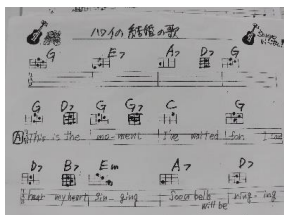 ハワイの結婚の歌
G E7 A7 D7 G
G D7 G G7 C G
A This is the moment I've waited for I can
D7 B7 Em A7 D7
hear my heart singing Soon bells will be ringing